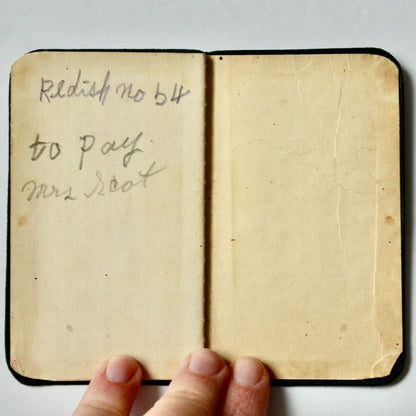 Redish No 54
to pay.
Mrs Scot